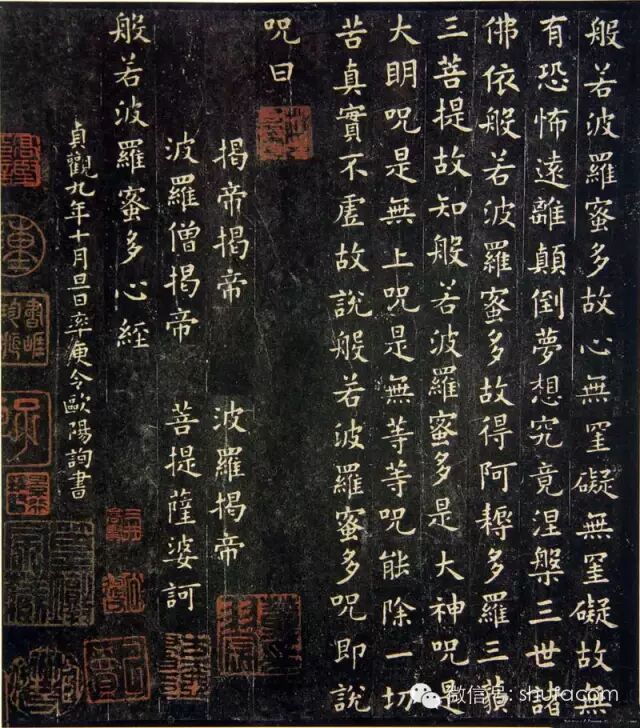 般若波羅蜜多故心無罣礙無罣礙故無
有恐怖遠離顛倒夢想究竟涅槃三世諸
佛依般若波羅蜜多故得阿耨多羅三藐
三菩提故知般若波羅蜜多是大神咒是
大明咒是無上咒是無等等咒能除一切
苦真實不虛故說般若波羅蜜多咒即說
咒曰
揭帝揭帝 波羅揭帝
波羅僧揭帝 菩提薩婆訶
般若波羅蜜多心經
貞觀九年十月旦日率更令歐陽詢書
微信号: shufacom